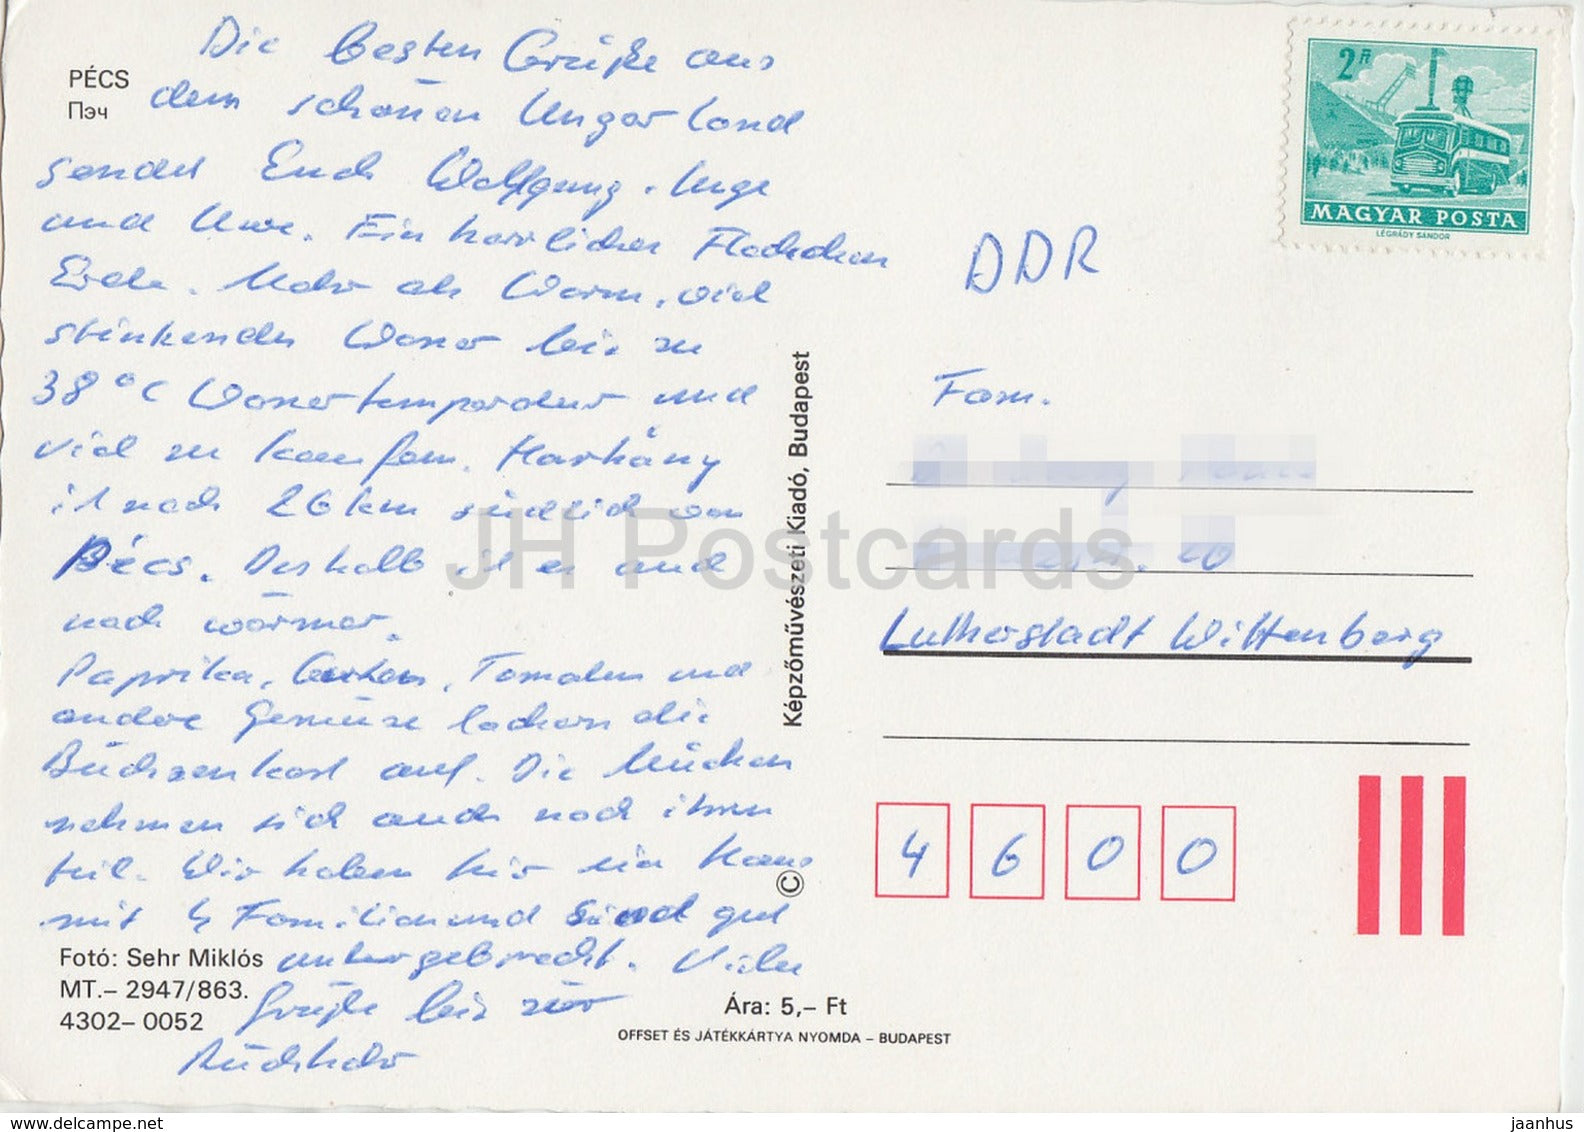 PÉCS
Пэч
Die besten Grüße aus
dem schönen Ungarland
sendet Euch Wolfgang, Inge
und Uwe. Ein herrliches Fleckchen
Erde. Mehr als Warm, viel
stinkendes Wasser bis zu
38°C Wassertemperatur und
viel zu kaufen. Harkány
ist noch 26 km südlich von
Pécs. Deshalb ist es auch
noch wärmer.
Paprika, Gurken, Tomaten und
andere Gemüse lockern die
Büchsenkost auf. Die Mücken
nehmen sich auch noch ihren
teil. Wir haben hier ein Haus
mit 4 Familien und sind gut
untergebracht. Viele
Grüße bis zur
Rückkehr
Fotó: Sehr Miklós
MT.– 2947/863.
4302– 0052
Képzőművészeti Kiadó, Budapest
©
Ára: 5,– Ft
OFFSET ÉS JÁTÉKKÁRTYA NYOMDA – BUDAPEST
2 Ft
MAGYAR POSTA
LÉGRÁDY SÁNDOR
DDR
Fam.
20
Lutherstadt Wittenberg
4 6 0 0
JH Postcards
www.delcampe.net
jaanhus